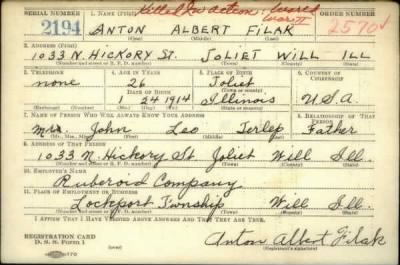 SERIAL NUMBER 1. NAME (Print) Killed In Action: World War II ORDER NUMBER
2194 ANTON ALBERT FILAK 2570
(First) (Middle) (Last)
2. ADDRESS (Print)
1033 N. HICKORY ST. JOLIET WILL ILL
(Number and street or R. F. D. number) (Town) (County) (State)
3. TELEPHONE 4. AGE IN YEARS 5. PLACE OF BIRTH 6. COUNTRY OF CITIZENSHIP
none 26 Joliet
DATE OF BIRTH (Town or county)
1 24 1914 Illinois U.S.A.
(Exchange) (Number) (Mo.) (Day) (Yr.) (State or country)
7. NAME OF PERSON WHO WILL ALWAYS KNOW YOUR ADDRESS 8. RELATIONSHIP OF THAT PERSON
Mr. John Leo Terlep Father
(Mr., Mrs., Miss) (First) (Middle) (Last)
9. ADDRESS OF THAT PERSON
1033 N. Hickory St Joliet Will Ill.
(Number and street or R. F. D. number) (Town) (County) (State)
10. EMPLOYER'S NAME
Ruberoid Company
11. PLACE OF EMPLOYMENT OR BUSINESS
Lockport Township Will Ill.
(Number and street or R. F. D. number) (Town) (County) (State)
I AFFIRM THAT I HAVE VERIFIED ABOVE ANSWERS AND THAT THEY ARE TRUE.
REGISTRATION CARD
D. S. S. Form 1 Anton Albert Filak
(Registrant's signature)